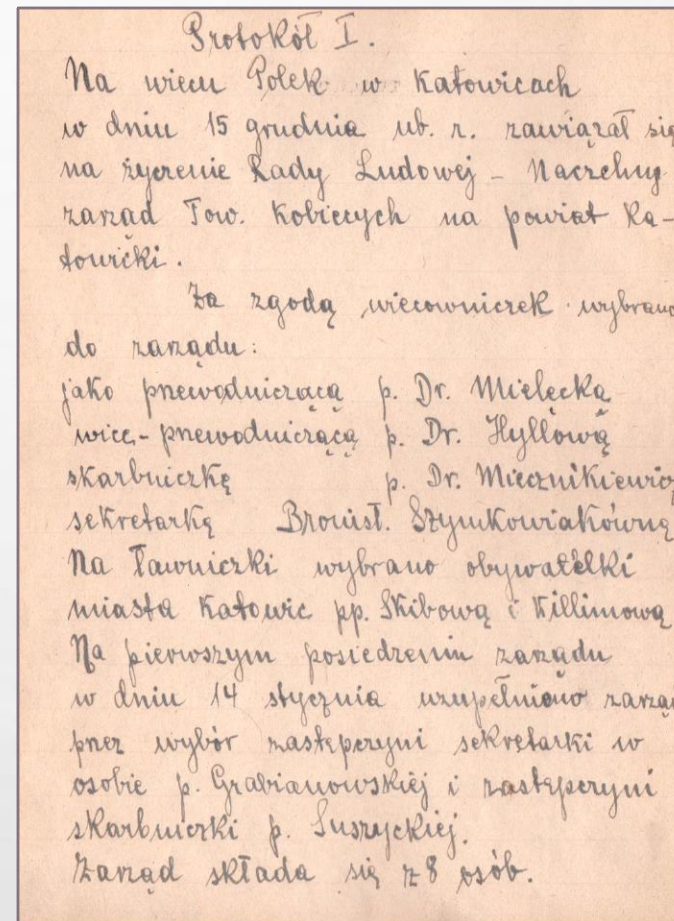 Protokół I.
Na wiecu Polek w Katowicach
w dniu 15 grudnia ub. r. zawiązał się
na życzenie Rady Ludowej - Naczelny
zarząd Tow. Kobiecych na powiat Ka-
towicki.
Za zgodą wiecowniczek wybrano
do zarządu:
jako przewodniczącą p. Dr. Mielęcką
wice-przewodniczącą p. Dr. Hyllową
skarbniczkę p. Dr. Miecznikiewicz
sekretarkę Bronisł. Szymkowiakównę
Na ławniczki wybrano obywatelki
miasta Katowic pp. Skibową i Killimową
Na pierwszym posiedzeniu zarządu
w dniu 14 stycznia uzupełniono zarząd
przez wybór zastępczyni sekretarki w
osobie p. Grabianowskiej i zastępczyni
skarbniczki p. Suszyckiej.
Zarząd składa się z 8 osób.